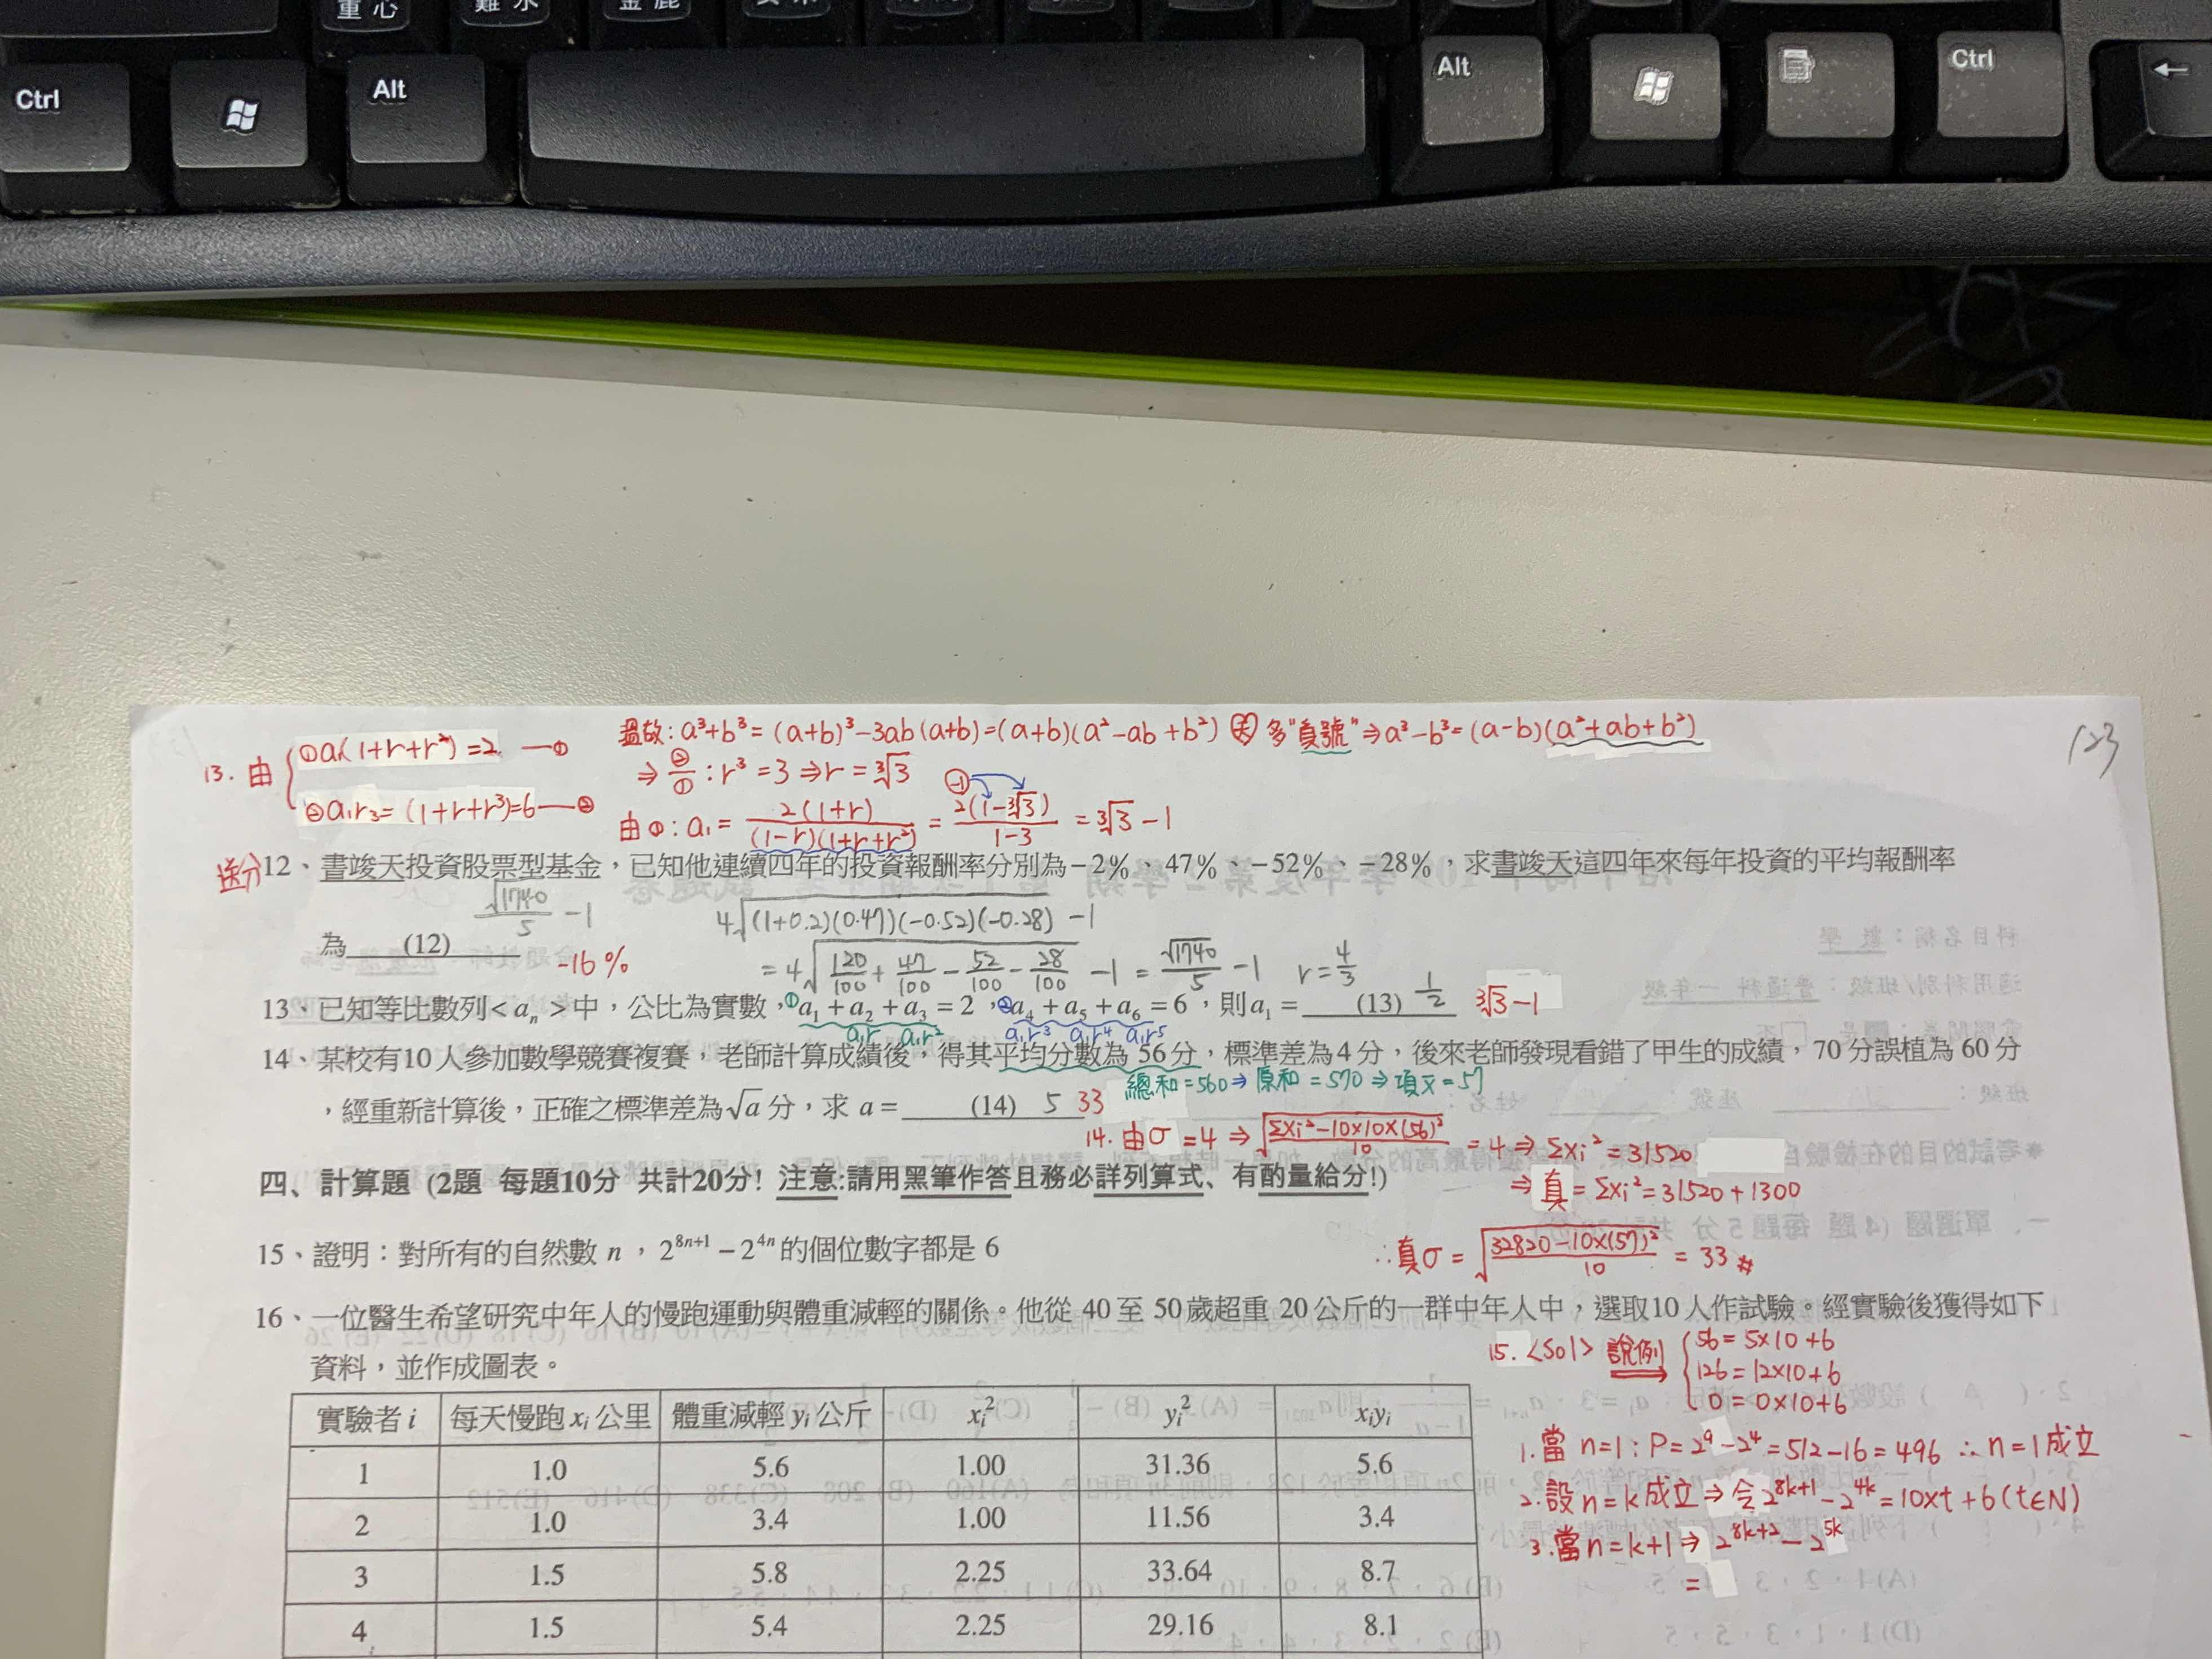 Ctrl
Alt
Alt
Ctrl
←
13. 由 ①a₁(1+r+r²)=2 —①
②a₁r₃=(1+r+r³)=6—②
溫故: a³+b³=(a+b)³-3ab(a+b)=(a+b)(a²-ab+b²) 多"負號"⇒a³-b³=(a-b)(a²+ab+b²)
⇒ ②/① : r³=3⇒r=∛3
由①: a₁= 2(1+r)/(1-r)(1+r+r²) = 2(1-∛3)/1-3 = ∛3-1
123
送分 12、書竣天投資股票型基金，已知他連續四年的投資報酬率分別為−2%、47%、−52%、−28%，求書竣天這四年來每年投資的平均報酬率
為 (12)
√1740/5 -1
-16%
4√(1+0.2)(0.47)(-0.52)(-0.28) -1
=4√120/100+47/100-52/100-28/100 -1 = √1740/5 -1 r=4/3
13、已知等比數列<aₙ>中，公比為實數，①a₁+a₂+a₃=2，②a₄+a₅+a₆=6，則a₁= (13) 1/2 ∛3-1
a₁r a₁r² a₁r³ a₁r⁴ a₁r⁵
14、某校有10人參加數學競賽複賽，老師計算成績後，得其平均分數為56分，標準差為4分，後來老師發現看錯了甲生的成績，70分誤植為60分
總和=560⇒原和=570⇒項x̄=57
，經重新計算後，正確之標準差為√a分，求 a= (14) 5 33
14. 由σ=4⇒√Σxi²-10×10×(56)²/10 =4⇒Σxi²=31520
⇒真=Σxi²=31520+1300
∴真σ=√32820-10×(57)²/10 =33 #
四、計算題 (2題 每題10分 共計20分! 注意:請用黑筆作答且務必詳列算式、有酌量給分!)
15、證明：對所有的自然數 n，2⁸ⁿ⁺¹−2⁴ⁿ的個位數字都是 6
16、一位醫生希望研究中年人的慢跑運動與體重減輕的關係。他從 40 至 50歲超重 20公斤的一群中年人中，選取10人作試驗。經實驗後獲得如下
資料，並作成圖表。
15. <Sol> 說例 56=5×10+6
126=12×10+6
0=0×10+6
1.當 n=1: P=2⁹-2⁴=512-16=496 ∴n=1成立
2.設n=k成立⇒令2⁸ᵏ⁺¹-2⁴ᵏ=10×t+6(t∈N)
3.當n=k+1⇒2⁸ᵏ⁺²-2⁵ᵏ
=
實驗者 i 每天慢跑 xᵢ 公里 體重減輕 yᵢ 公斤 xᵢ² yᵢ² xᵢyᵢ
1 1.0 5.6 1.00 31.36 5.6
2 1.0 3.4 1.00 11.56 3.4
3 1.5 5.8 2.25 33.64 8.7
4 1.5 5.4 2.25 29.16 8.1